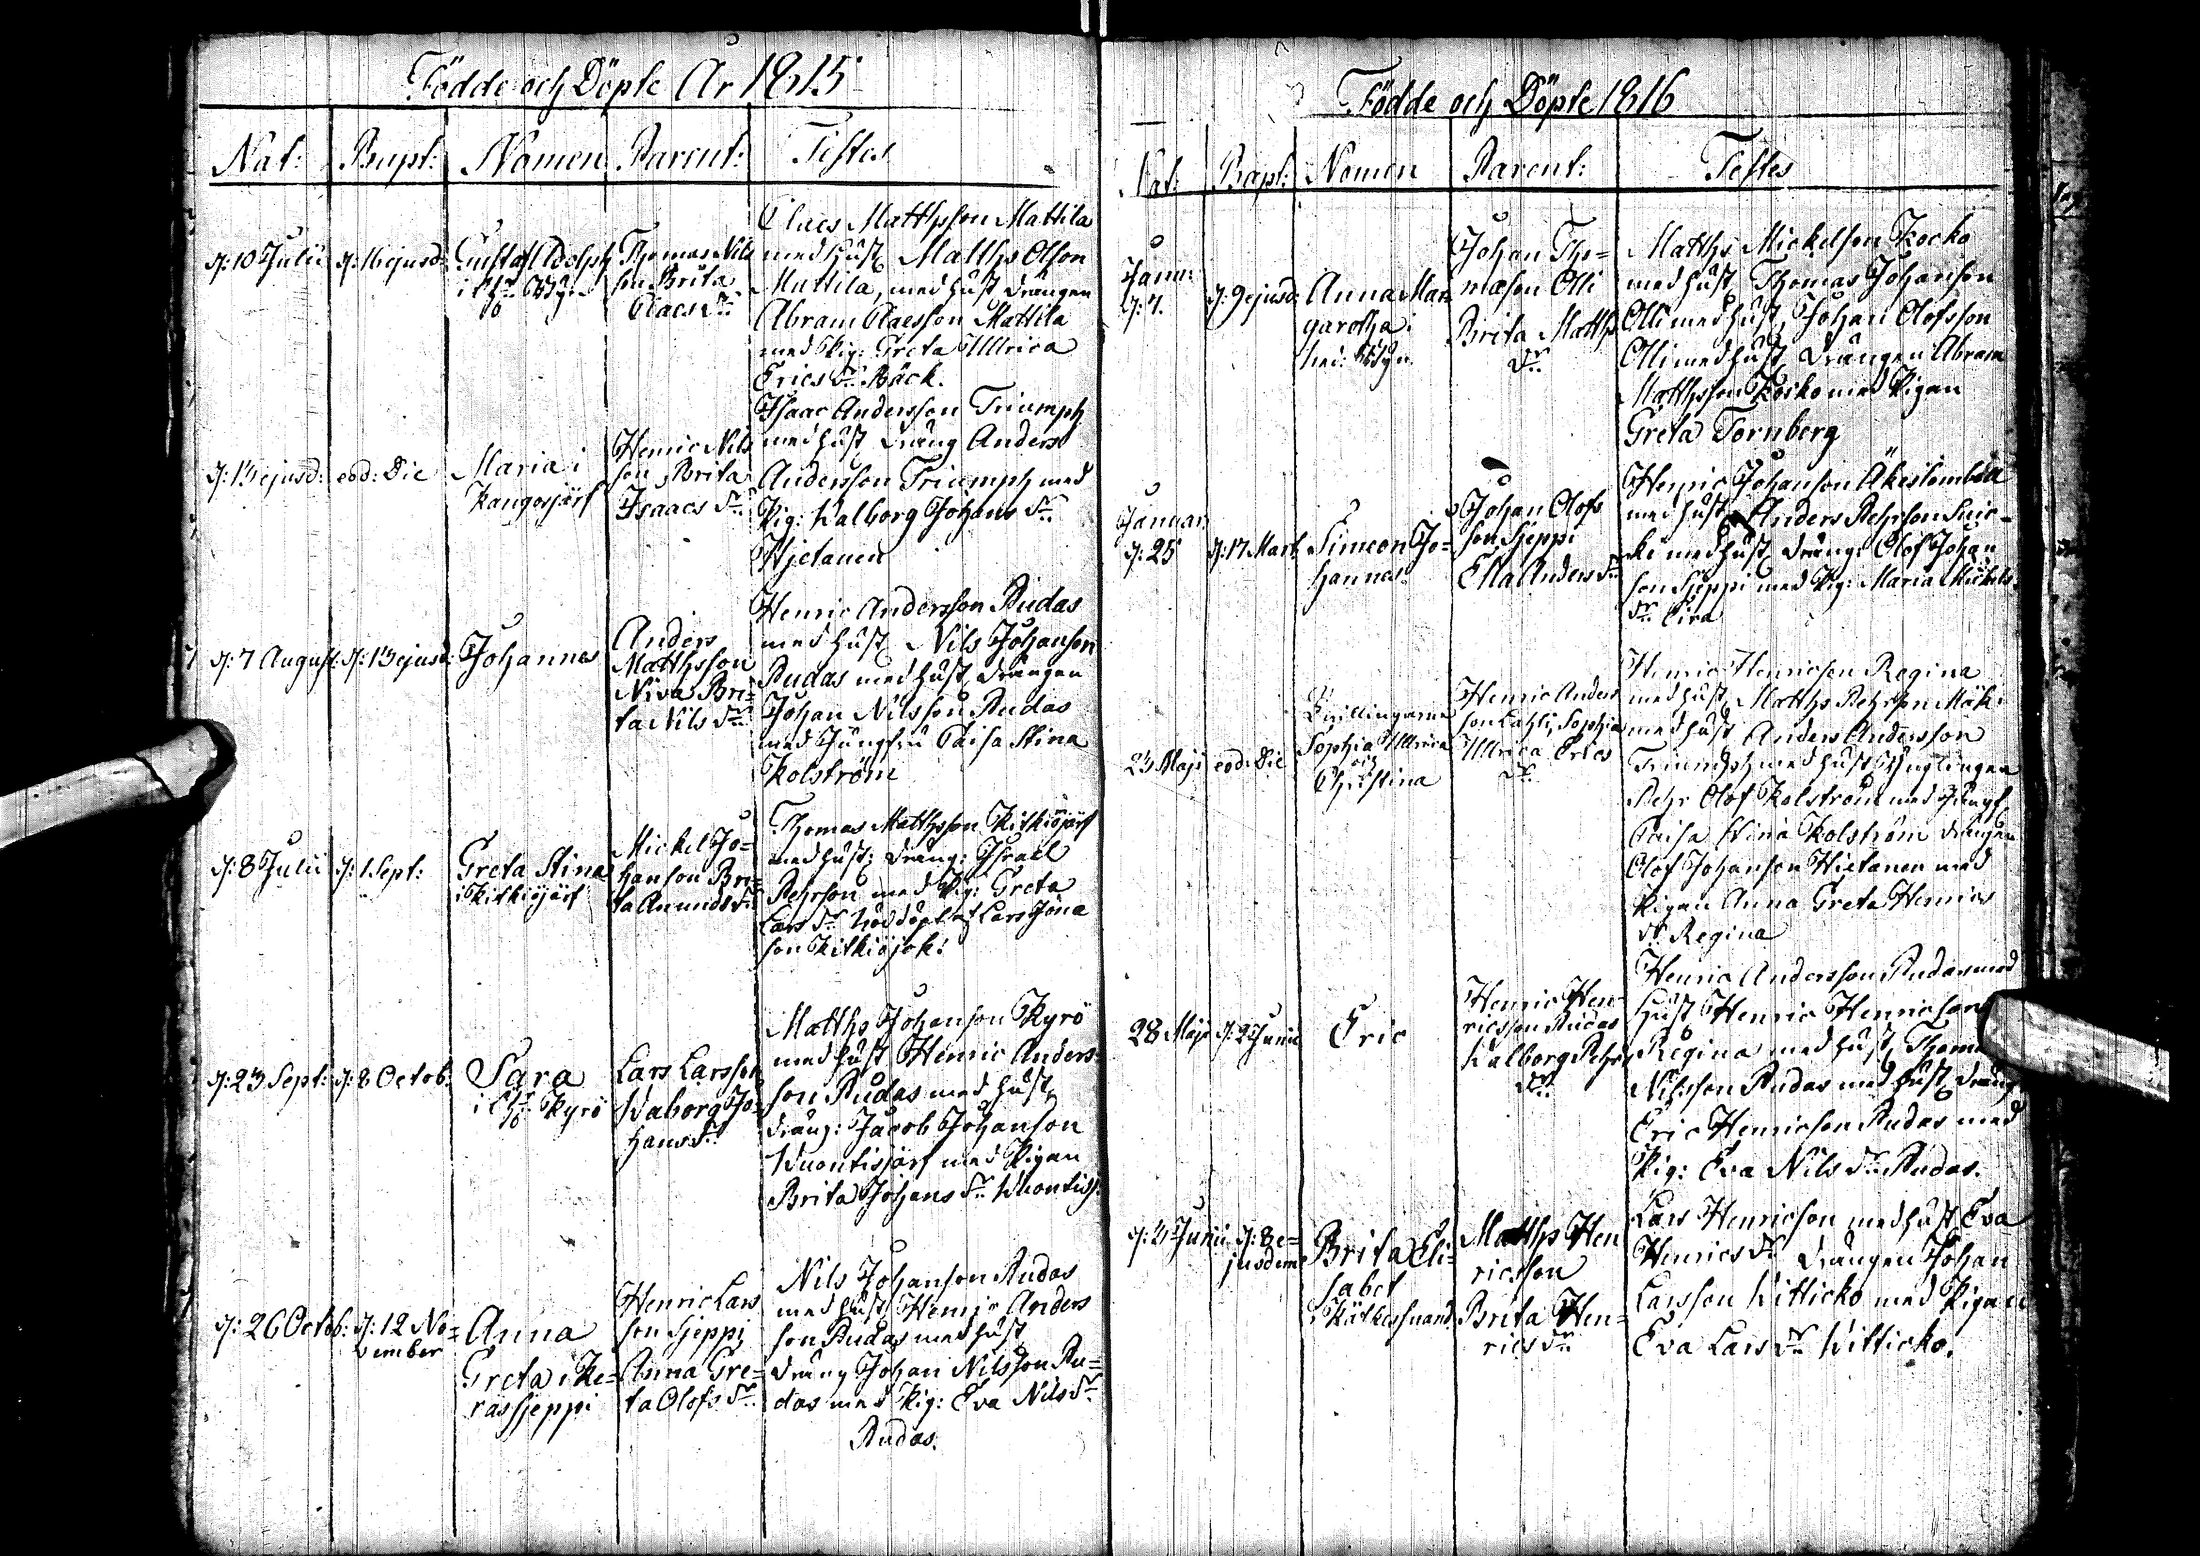 Födde och Döpte År 1815
Nat: Bapt: Nomen Parent: Testes
d: 10 Julii d: 16 ejusd: Gustaf Adolph
Thomas Nils
son Brita
Claes dr:
Claes Matthsson Mattila
med hust Matths Olson
Mattila, med hust drängen
Abram Claesson Mattila
med Pig: Greta Ullrica
Erics dr Bäck.
d: 13 ejusd: eod: Die Maria i
Kangosjärf
Henric Nils
son Brita
Isaacs dr:
Isaac Andersson Triumph
med hust dräng Anders
Andersson Triumph med
Pig: Walborg Johans dr:
Hjetanen
d: 7 August: d: 13 ejusd: Johannes
Anders
Matthsson
Niva Bri=
ta Nils dr:
Henric Andersson Rudas
med hust Nils Johanson
Rudas med hust, drängen
Johan Nilsson Rudas
med Jungfru Caisa Stina
Kolström
d: 8 Julii d: 1 Sept: Greta Stina
i Kitkiöjärf
Mickel Jo=
hanson Bri=
ta Amunds dr:
Thomas Matthsson Kitkiöjärf
med hust: dräng: Israel
Pehrson med Pig: Greta
Lars dr Nöddöpt af Lars Jöna
son Kitkiöjoki
d: 23 Sept: d: 8 Octob: Sara
i Kyrö
Lars Larsson
Waborg Jo=
hans dr:
Matths Johanson Kyrö
med hust Henric Anders=
son Rudas med hust,
dräng: Jacob Johanson
Wuontisjärf med Pigan
Brita Johans dr: Wuontisj:
d: 26 Octob: d: 12 No=
vember
Anna
Greta i Ke=
rässjeppi
Henric Lars
son Sjeppi
Anna Gre=
ta Olofs dr:
Nils Johanson Rudas
med hust Henric Anders
son Rudas med hust
dräng Johan Nilsson Ru=
das med Pig: Eva Nils dr
Rudas.
Födde och Döpte 1816
Nat: Bapt: Nomen Parent: Testes
Janu:
d: 7. d: 9 ejusd: Anna Mar
garetha i
ned: Byn
Johan Tho=
mæson Olli
Brita Matths
dr:
Matths Mickelson Kocko
med hust Thomas Johanson
Olli med hust, Johan Olofsson
Olli med hust drängen Abram
Matthsson Kocko med Pigan
Greta Tornberg
Januar:
d: 25 d: 17 Mart: Simeon Jo=
hannes
Johan Olofs
son Sjeppi
Ella Anders dr
Henric Johanson Äkeslombola
med hust, Anders Pehrson
ki med hust dräng: Olof Johan
son Sjeppi med Pig: Maria Mickels
dr: Eira
23 Maji eod: Die
Twillingarne
Sophia Ullrica
och
Christina
Henric Anders
son Lahti, Sophia
Ullrica Erics
dr:
Henric Henricson Regina
med hust, Matths Pehrson Mäki
med hust Anders Andersson
Triumph med hust Ynglingen
Pehr Olof Kolström med Jungf
Caisa Stina Kolström drängen
Olof Johanson Hietanen med
Pigan Anna Greta Henrics
dr Regina
28 Maji d: 2 Junii Eric
Henric Hen=
ricsson Rudas
Walborg Pehrs
dr:
Henric Andersson Rudas med
Hust Henric Henricson
Regina med hust,
Nilsson Rudas med hust dräng
Eric Henricson Rudas med
Pig: Eva Nils dr: Rudas.
d: 4 Junii d: 8 e=
jusdem
Brita Eli=
sabet
i Kätkesuand
Matths Hen
ricsson
Brita Hen=
rics dr:
Lars Henricson med hust Eva
Henrics dr drängen Johan
Larsson Witticko med Pigan
Eva Lars dr: Wittiko.